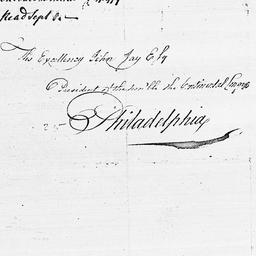 Head Sept 80
His Excellency John Jay Esqr
President of the Honble the Continental Congress
Philadelphia